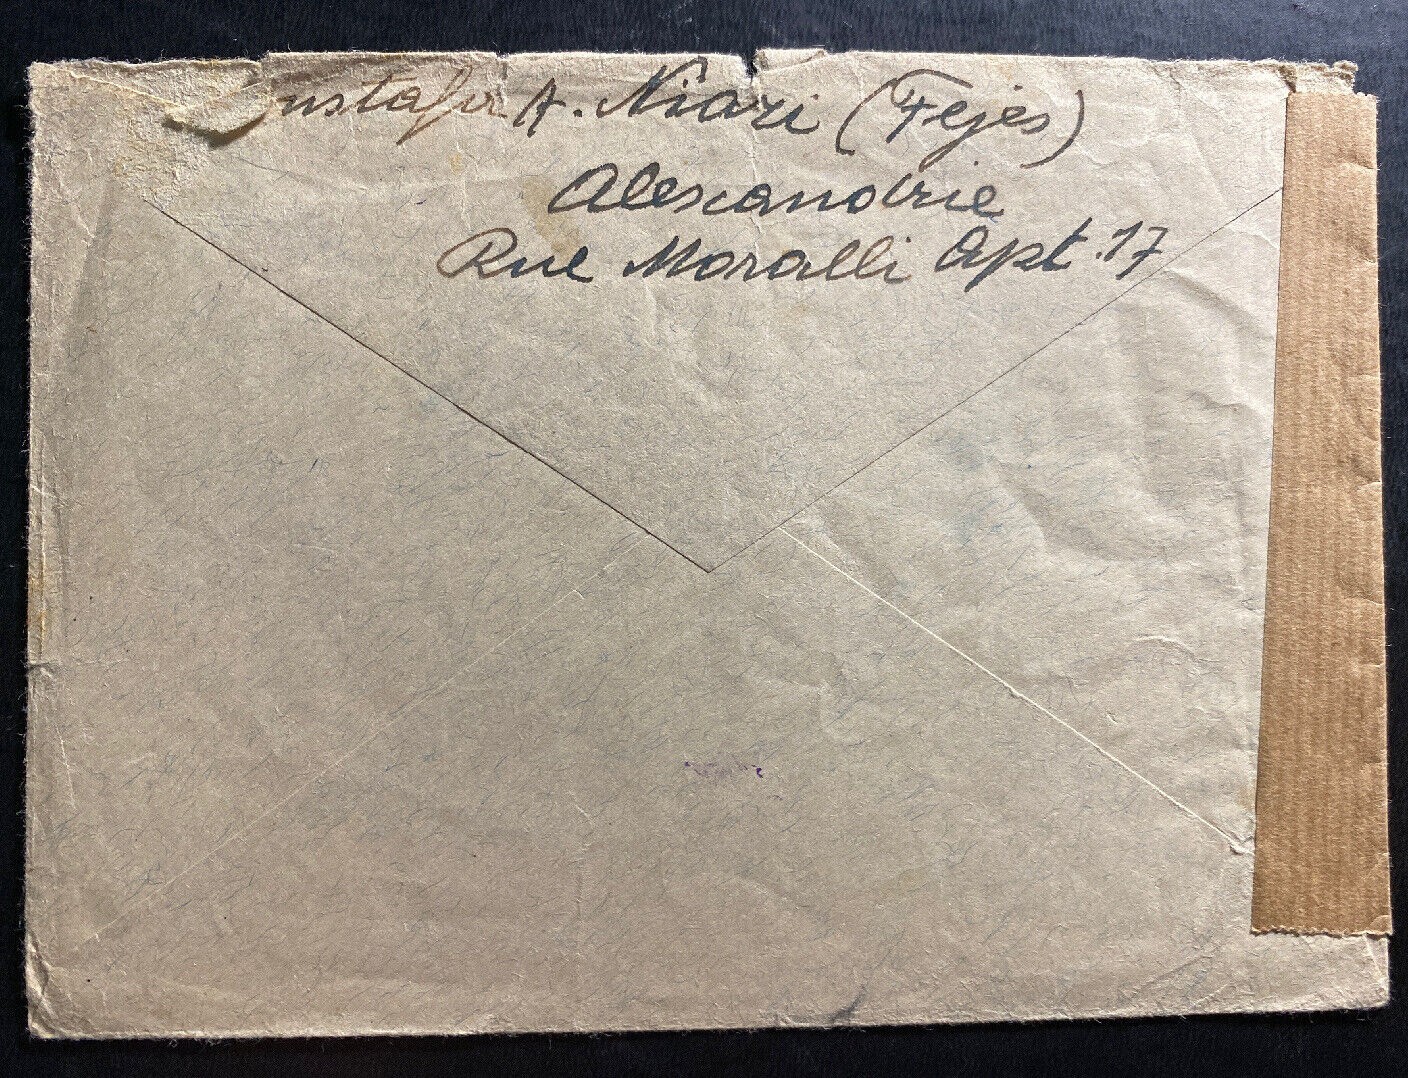 ustafa A. Niazi (Fejes)
Alexandrie
Rue Moralli Apt. 17